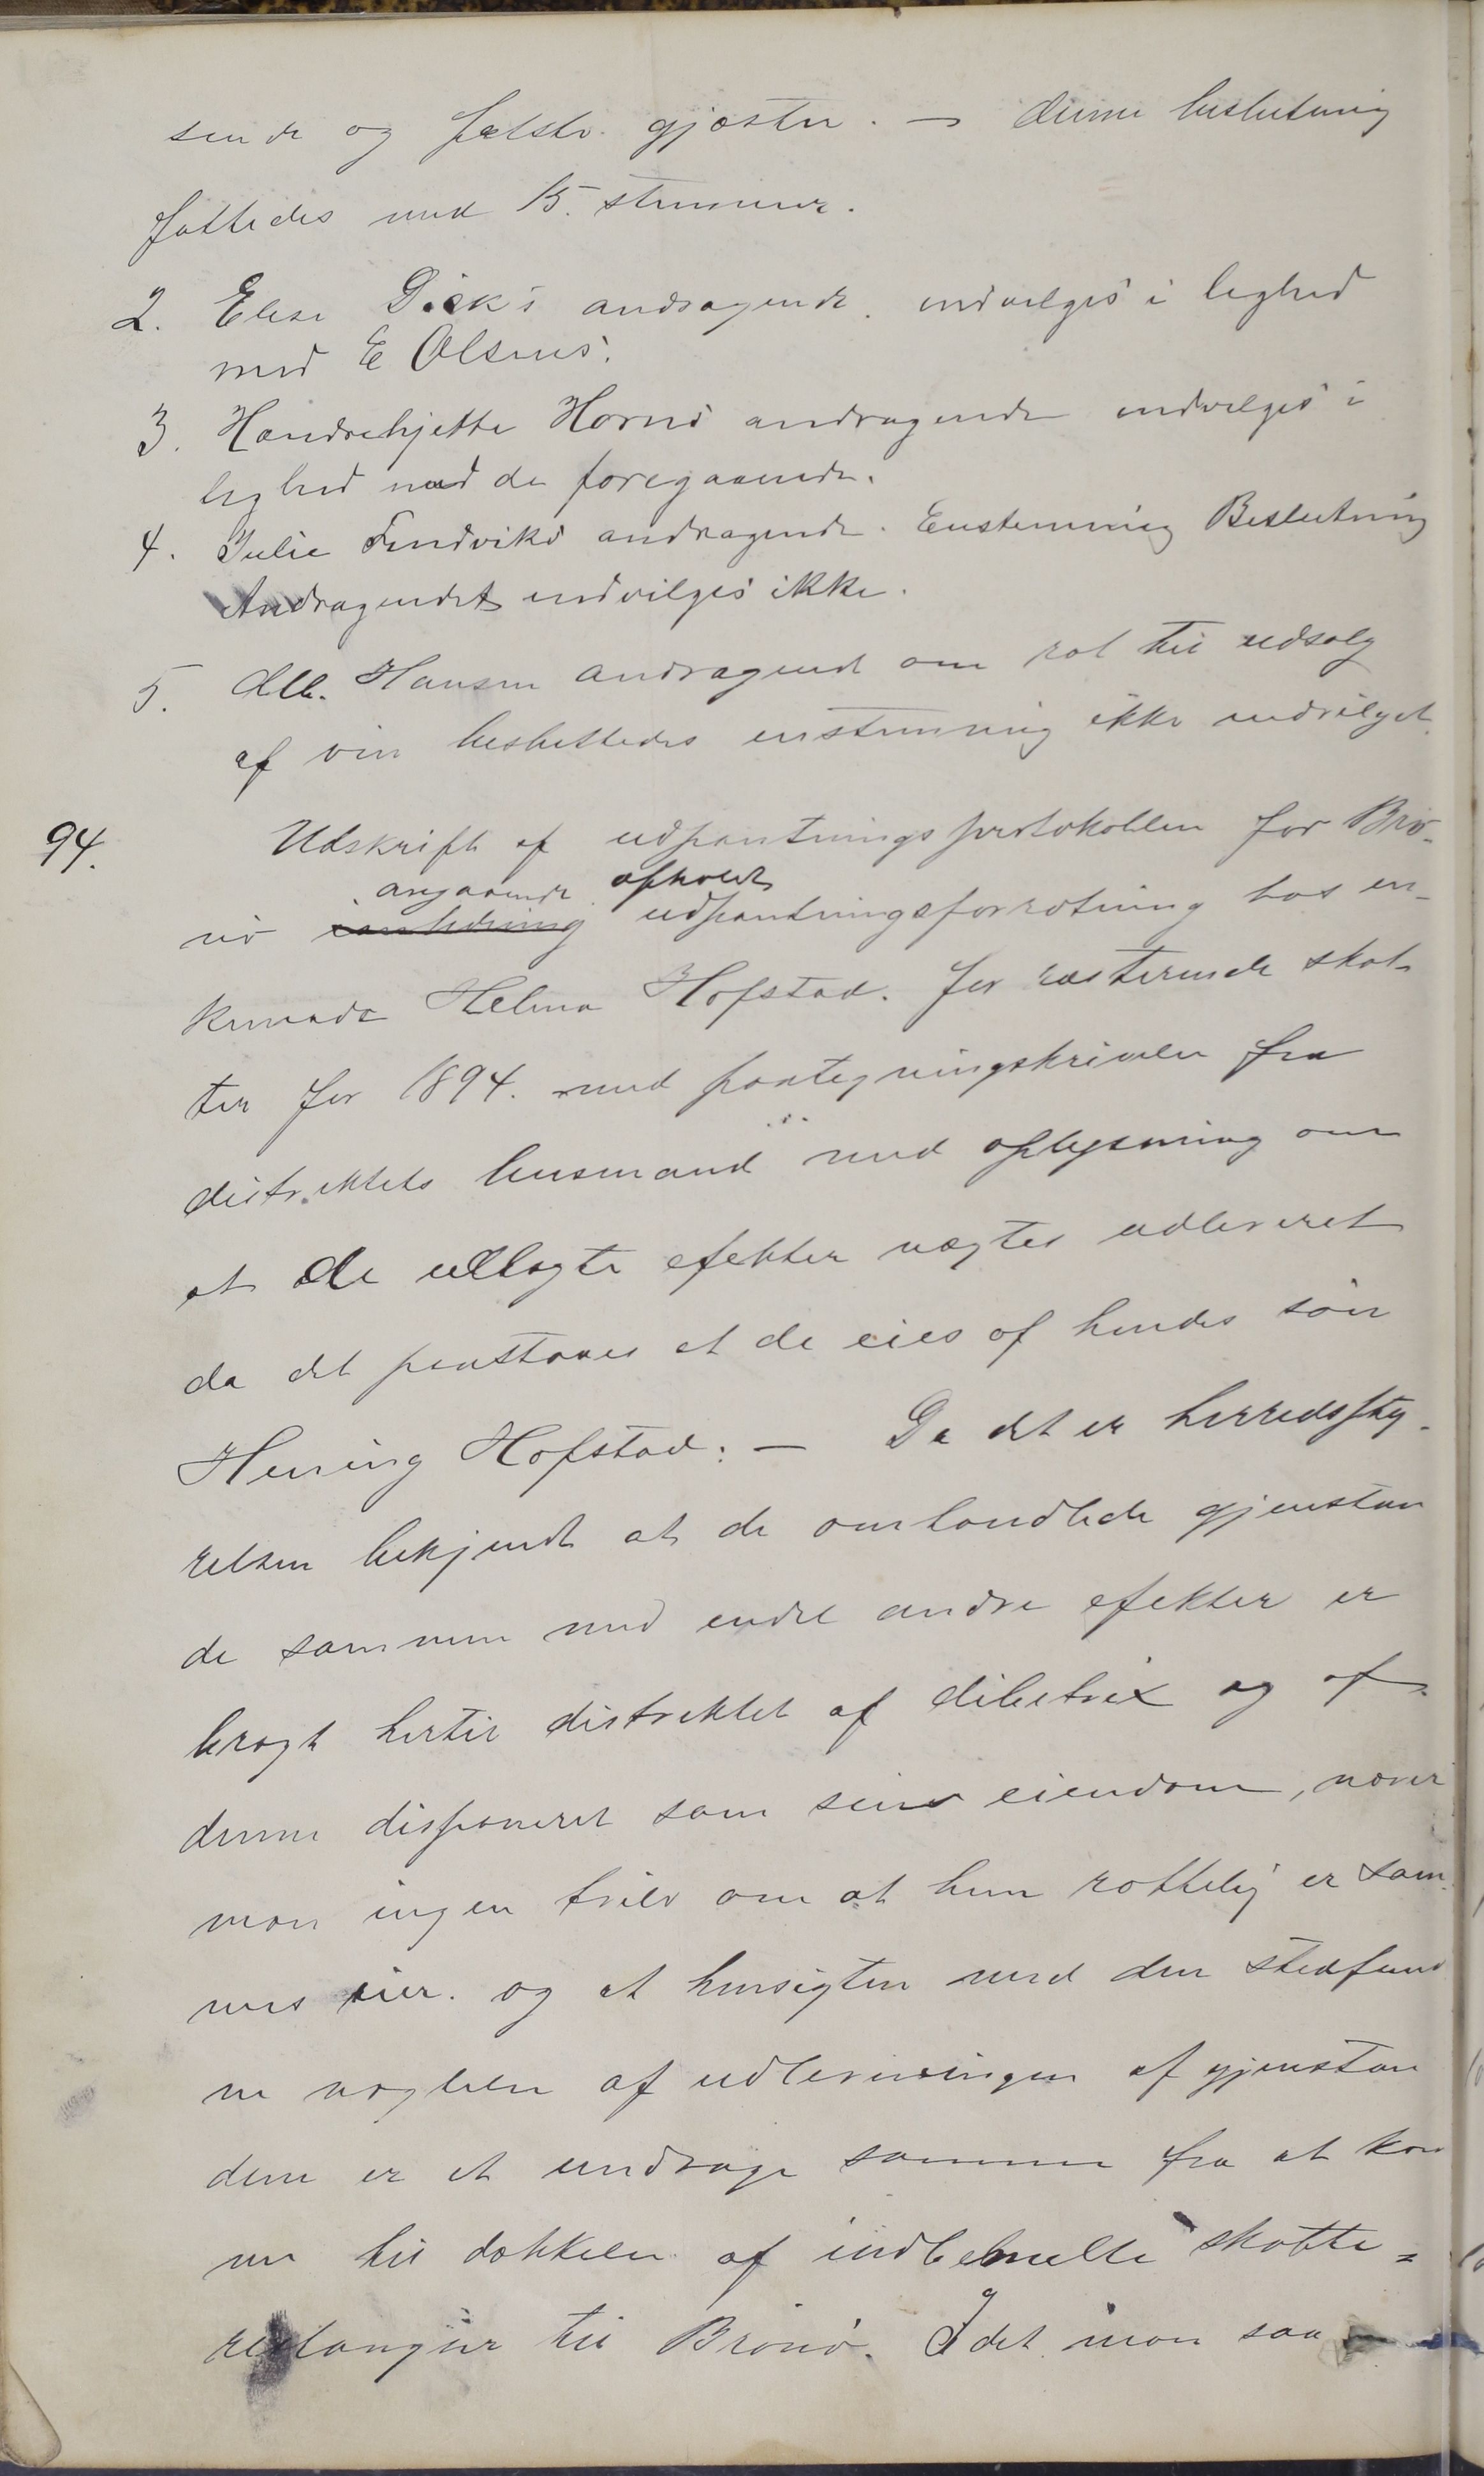 sende og fælstv. gjæster. — Denne beslutning
fattedes med 15. stemmer.
2. Elise Dick's andragende. indvilges i lighed
med E Olsens.
3. Handschjette Horns andragende indvilges i
lighed med de foregaaende.
4. Julie Sundviks andragende. Enstemmig Beslutning
Andragendet indvilges ikke.
5. All. Hansen andragende om ret til udsalg
af vin besluttedes enstemmig ikke indvilget.
94. Udskrift af udpantningsprotokollen for Brø-
angaaende afholdt
nø udpantningsforretning hos en-
kemada Helma Hofstad. for resterende skat-
ter for 1894. med paategningskrivelse fra
distriktets lensmand med oplysning om
at de udlagte efekter nægtes udleveret
da det paastaaes at de eies af hendes søn
Hening Hofstad: — Da det er herredssty-
relsen bekjendt at de omhandlede gjenstan
de sammen med endel andre efekter er
bragt hertil distriktet af debitrix og af
denne disponeret som sin eiendom, nærer
man ingen tvil om at hun rettelig er sam-
mes eier. og at hensigten med den stedfund
ne nægtelse af udleveringen af gjenstan
dene er at undrage samme fra at kom
me til dækkelse af indbemelte skatte-
restanser til Brønø. Idet man saa